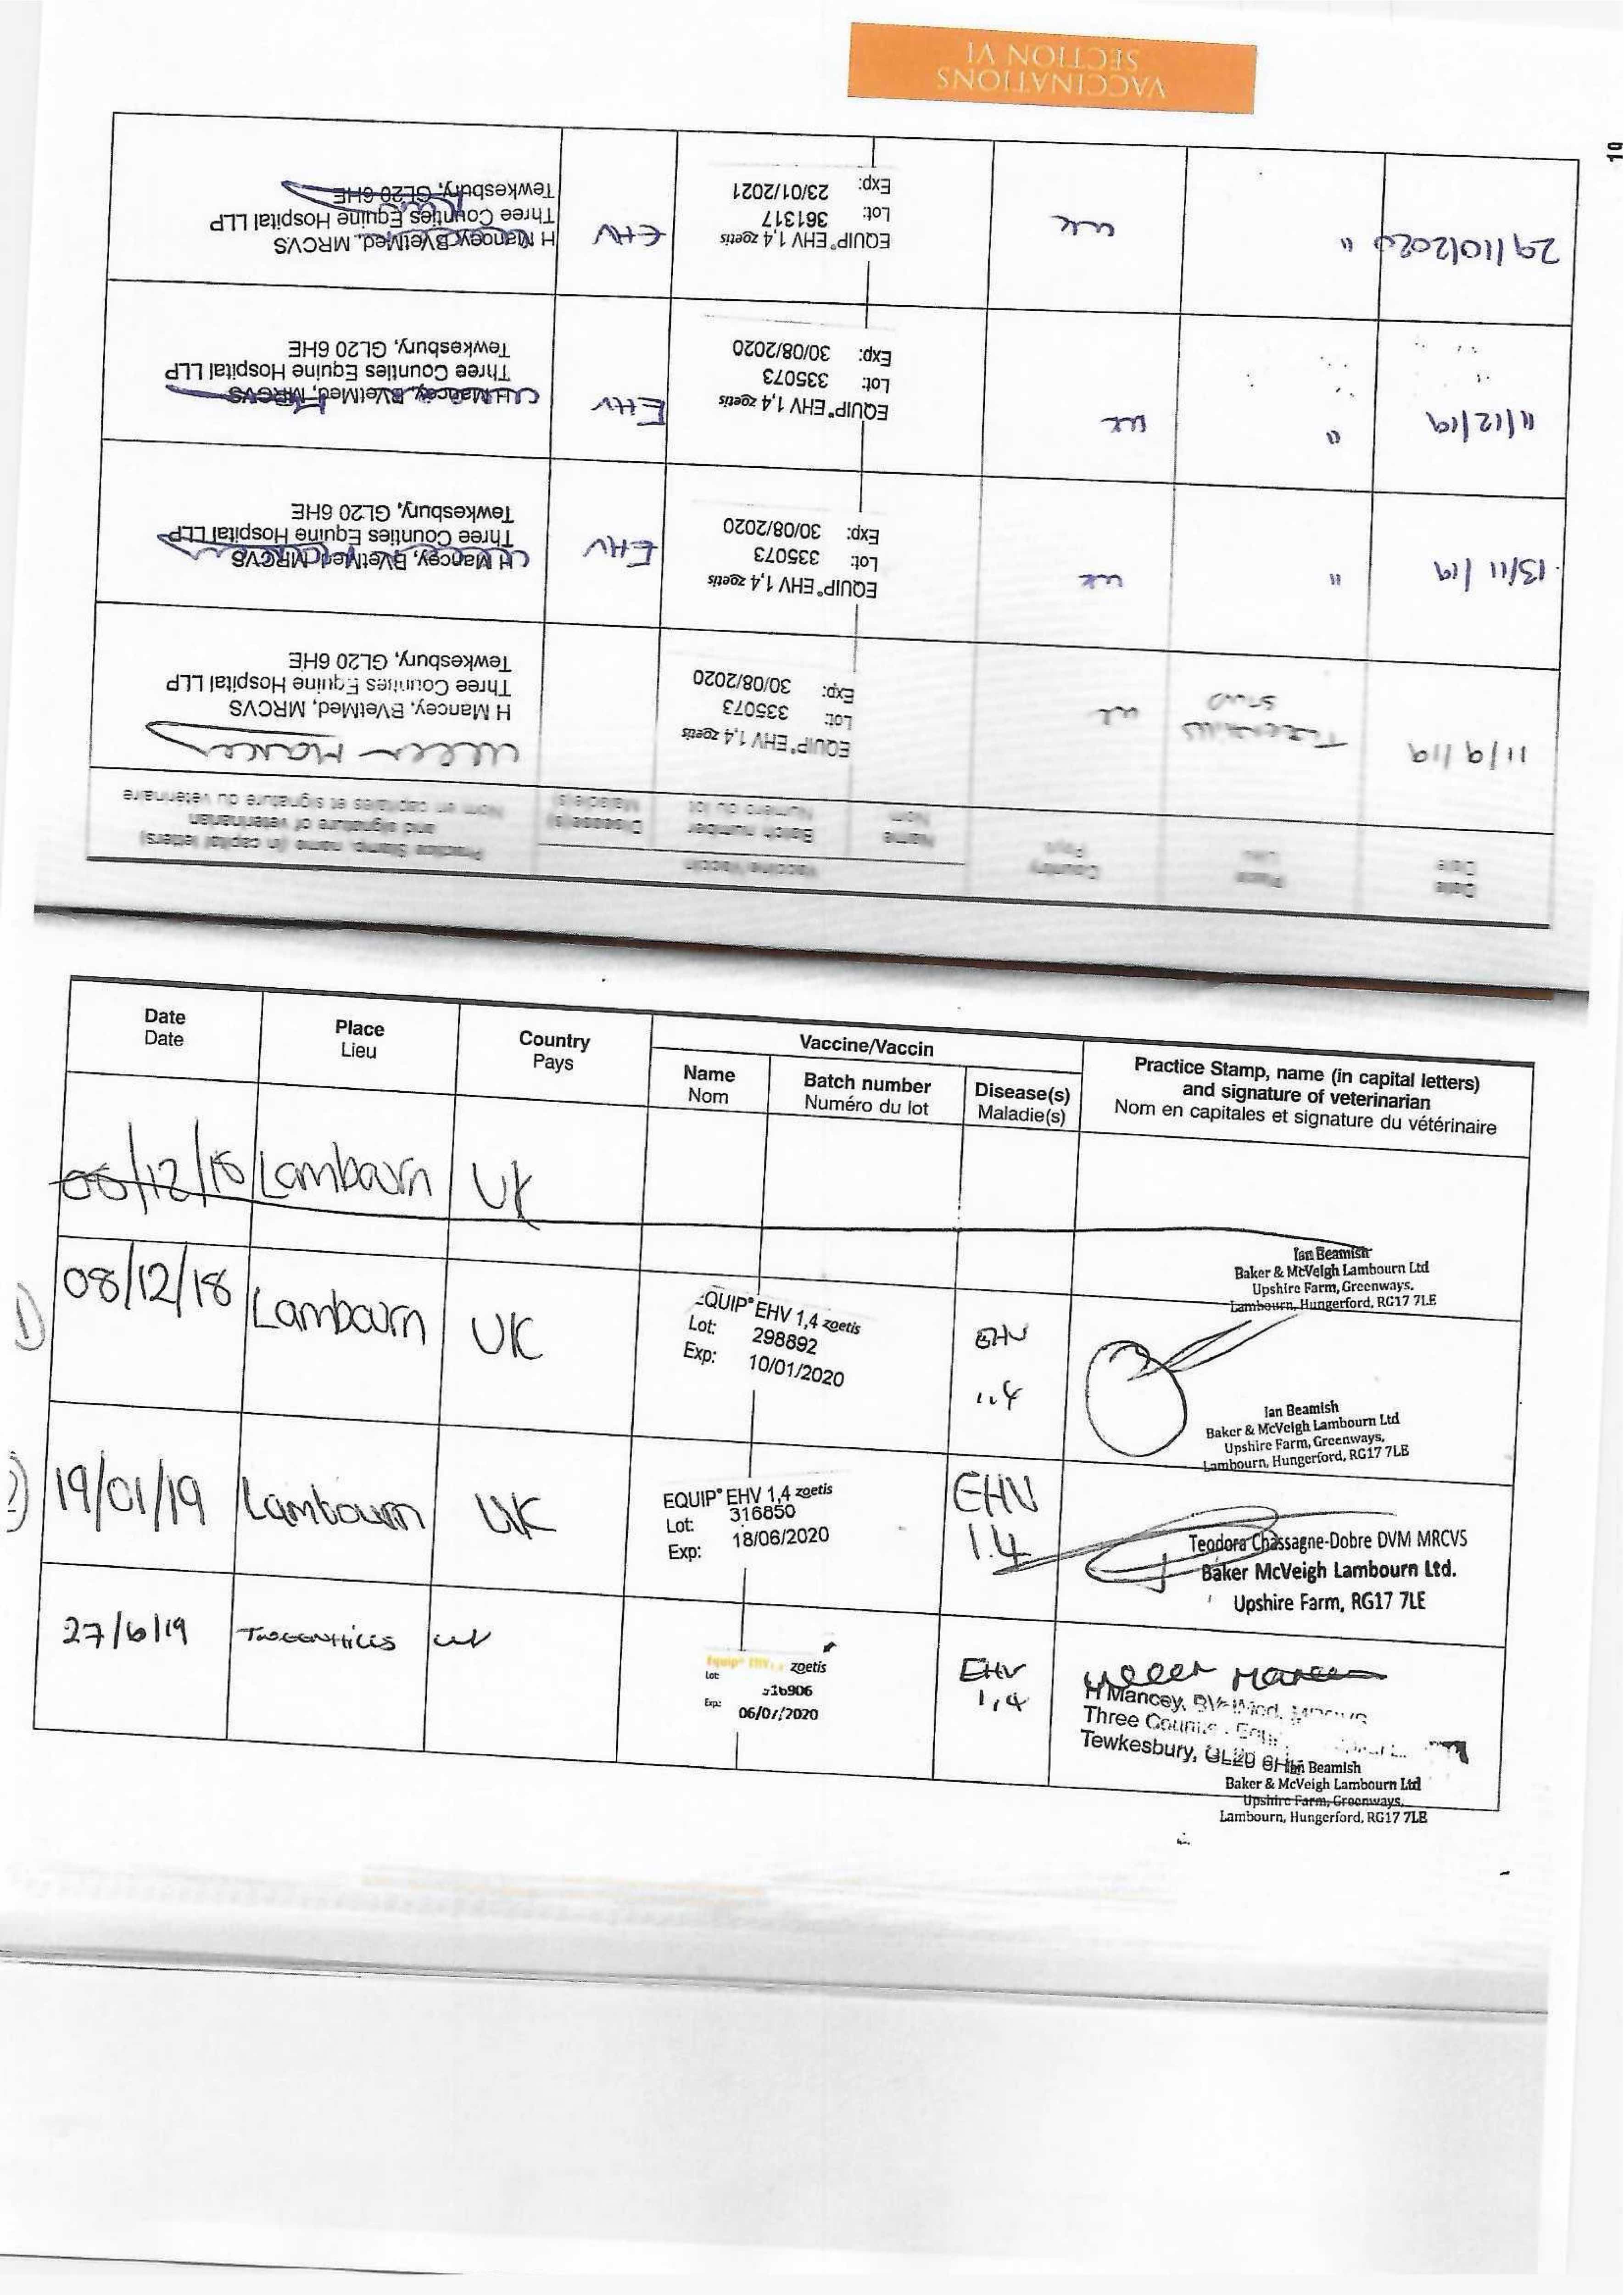 VACCINATIONS
SECTION VI
19
Date Place Country Vaccine/Vaccin Practice Stamp, name (in capital letters)
Date Lieu Pays Name Batch number Disease(s) and signature of veterinarian
Nom Numéro du lot Maladie(s) Nom en capitales et signature du vétérinaire
11/9/19 STUD UK EQUIP® EHV 1,4 zoetis
Lot: 335073
Exp: 30/08/2020
H Mancey, BVetMed, MRCVS
Three Counties Equine Hospital LLP
Tewkesbury, GL20 6HE
13/11/19 " UK EQUIP® EHV 1,4 zoetis
Lot: 335073
Exp: 30/08/2020
EHV
H Mancey, BVetMed, MRCVS
Three Counties Equine Hospital LLP
Tewkesbury, GL20 6HE
11/12/19 " UK EQUIP® EHV 1,4 zoetis
Lot: 335073
Exp: 30/08/2020
EHV
H Mancey, BVetMed, MRCVS
Three Counties Equine Hospital LLP
Tewkesbury, GL20 6HE
29/10/2020 " UK EQUIP® EHV 1,4 zoetis
Lot: 361317
Exp: 23/01/2021
EHV
H Mancey, BVetMed, MRCVS
Three Counties Equine Hospital LLP
Tewkesbury, GL20 6HE
Date Place Country Vaccine/Vaccin Practice Stamp, name (in capital letters)
Date Lieu Pays Name Batch number Disease(s) and signature of veterinarian
Nom Numéro du lot Maladie(s) Nom en capitales et signature du vétérinaire
Lambourn UK
Ian Beamish
Baker & McVeigh Lambourn Ltd
Upshire Farm, Greenways,
Lambourn, Hungerford, RG17 7LE
1) 08/12/18 Lambourn UK EQUIP® EHV 1,4 zoetis
Lot: 298892
Exp: 10/01/2020
EHV
1.4
Ian Beamish
Baker & McVeigh Lambourn Ltd
Upshire Farm, Greenways,
Lambourn, Hungerford, RG17 7LE
2) 19/01/19 Lambourn UK EQUIP® EHV 1,4 zoetis
Lot: 316850
Exp: 18/06/2020
EHV
1.4
Teodora Chassagne-Dobre DVM MRCVS
Baker McVeigh Lambourn Ltd.
Upshire Farm, RG17 7LE
27/6/19 UK Equip® EHV zoetis
Lot:
Exp:
EHV
1,4
H Mancey,
Three
Tewkesbury,
Ian Beamish
Baker & McVeigh Lambourn Ltd
Upshire Farm, Greenways,
Lambourn, Hungerford, RG17 7LE